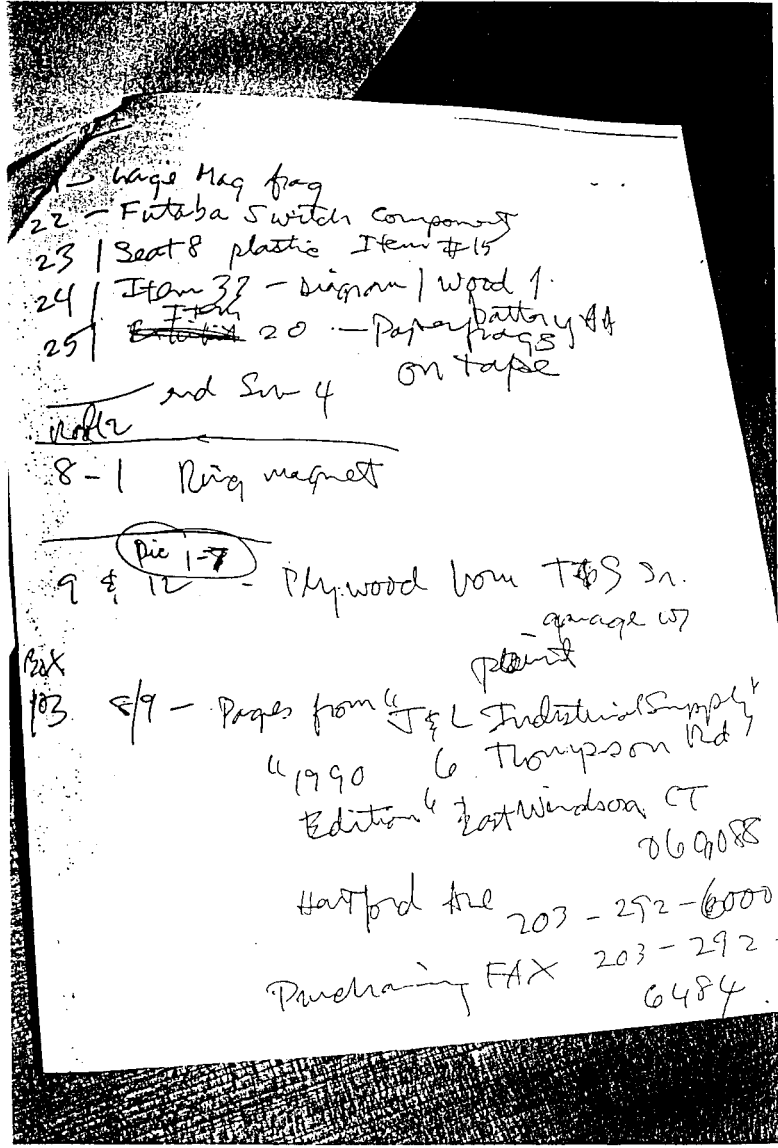 21 - Large Mag frag
22 - Futaba Switch Component
23 | Seat 8 plastic Item #15
24 | Item 32 - Diagram | Wood 1.
25 | Item 20 - Paper frags
battery AA
on tape
end 4
8-1 Ring magnet
Pic 1-7
9 & 12 - Plywood from
garage w/
paint
Box
103 8/9 - Pages from "J & L Industrial Supply"
"1990 6 Thompson Rd
Edition" East Windsor, CT
06088
Hartford Area 203-292-6000
Purchasing FAX 203-292-
6484